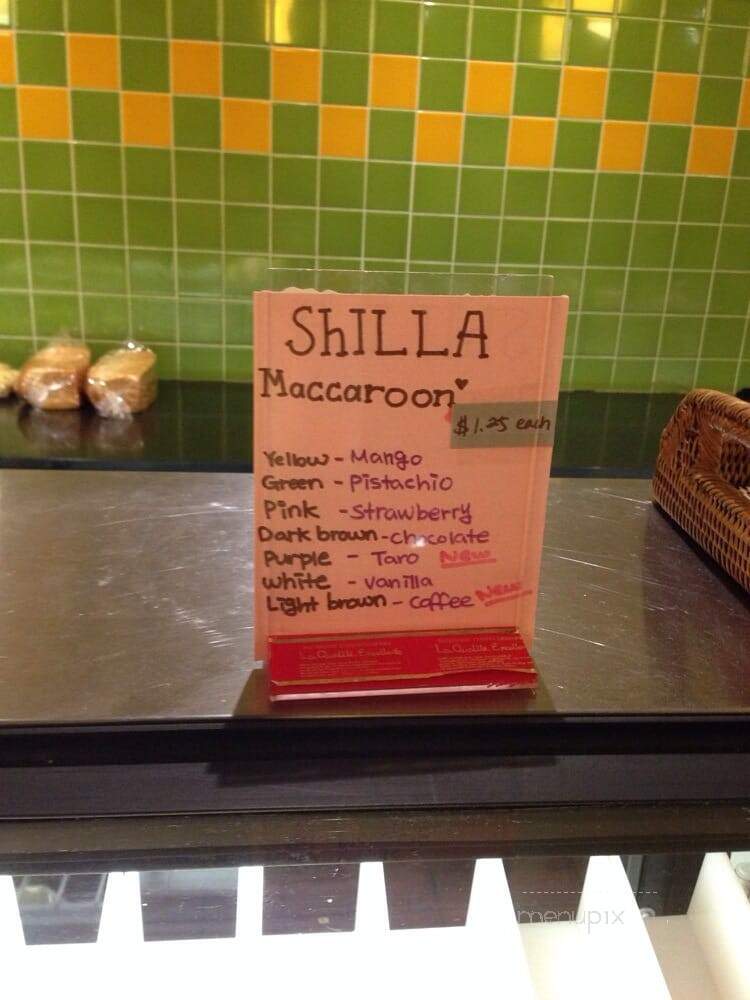 ShILLA
Maccaroon♥
$1.25 each
Yellow - Mango
Green - Pistachio
Pink - Strawberry
Dark brown - chocolate
Purple - Taro New
white - vanilla
Light brown - coffee New
menupix